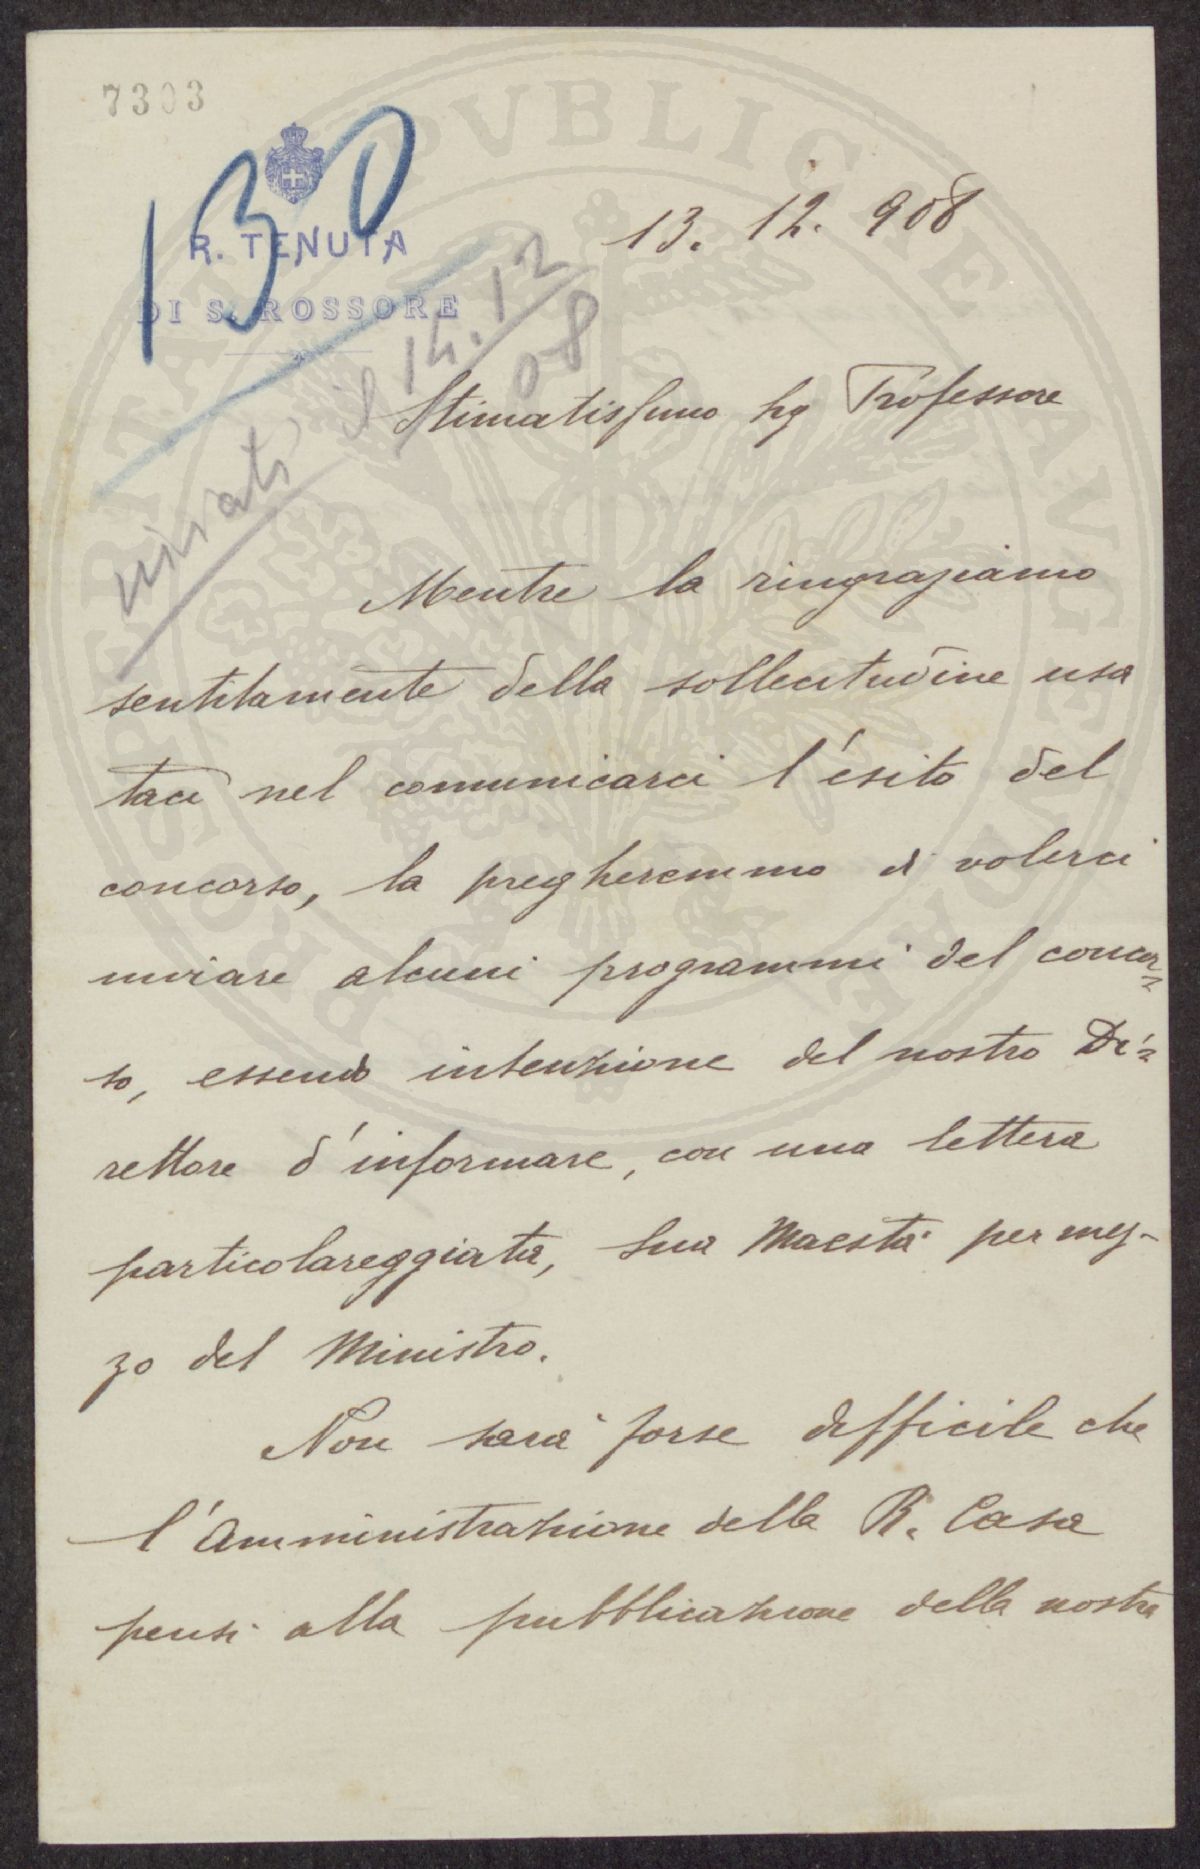 7303
130
R. TENUTA
DI S. ROSSORE
13. 12. 908
inviati il 14.12
08
Stimatissimo Sig Professore
Mentre la ringraziamo
sentitamente della sollecitudine usa
taci nel comunicarci l'esito del
concorso, la pregheremmo di volerci
inviare alcuni programmi del concor=
so, essendo intenzione del nostro Di=
rettore d'informare, con una lettera
particolareggiata, Sua Maestà per mez-
zo del Ministro.
Non sarà forse difficile che
l'Amministrazione della R. Casa
pensi alla pubblicazione della nostra
PROSPERITATI PVBLICAE AVGENDAE